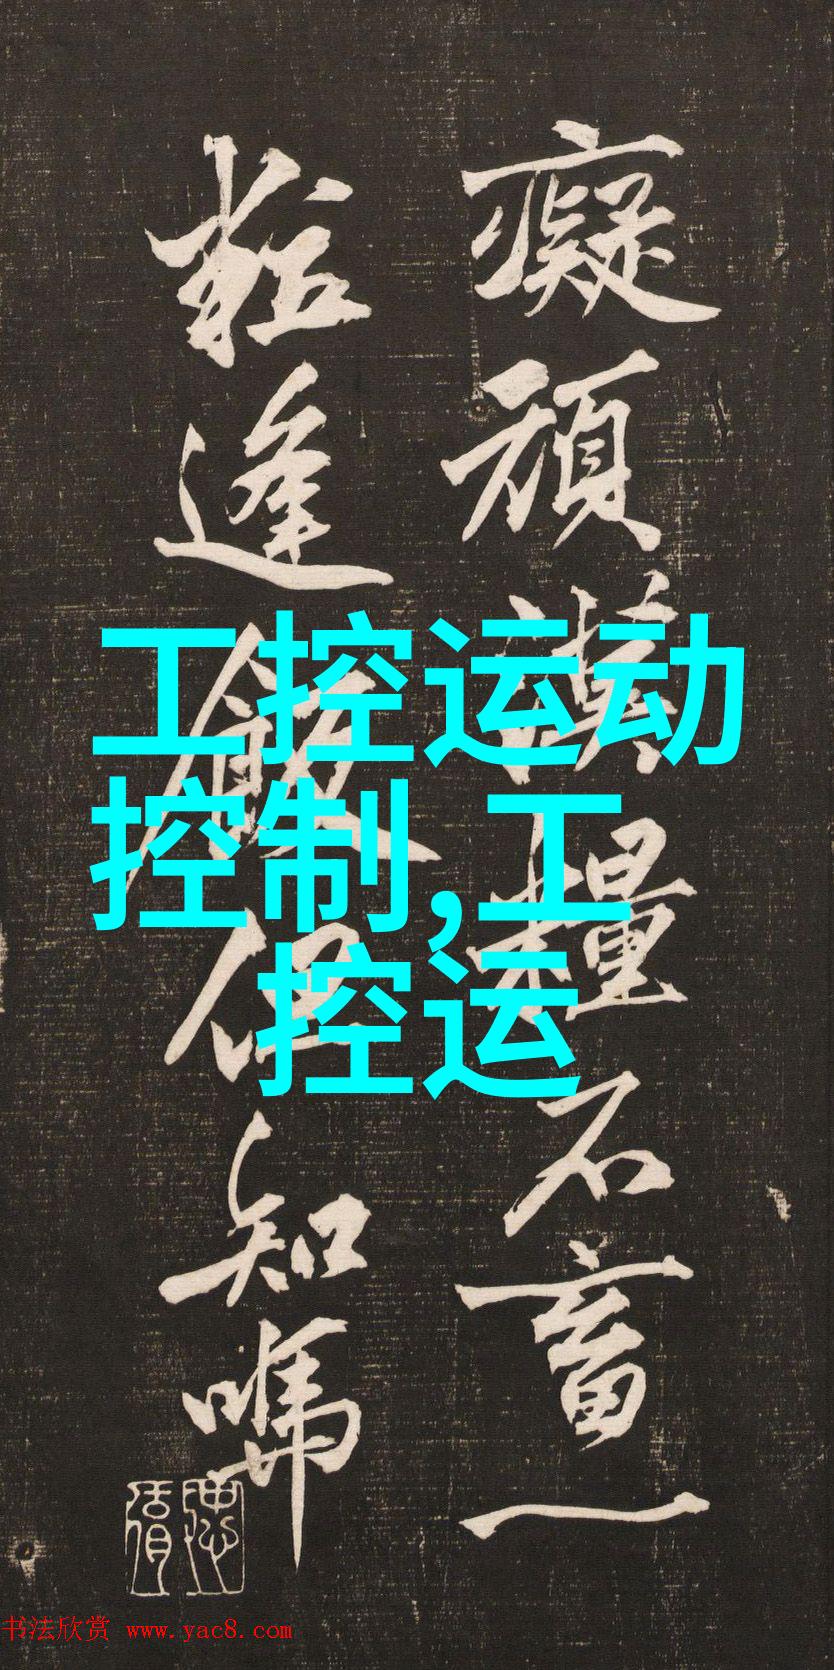 工控运动
控制,工
控运
癡頑糧不畜一
粒逢飯但知嗎
书法欣赏 www.yac8.com